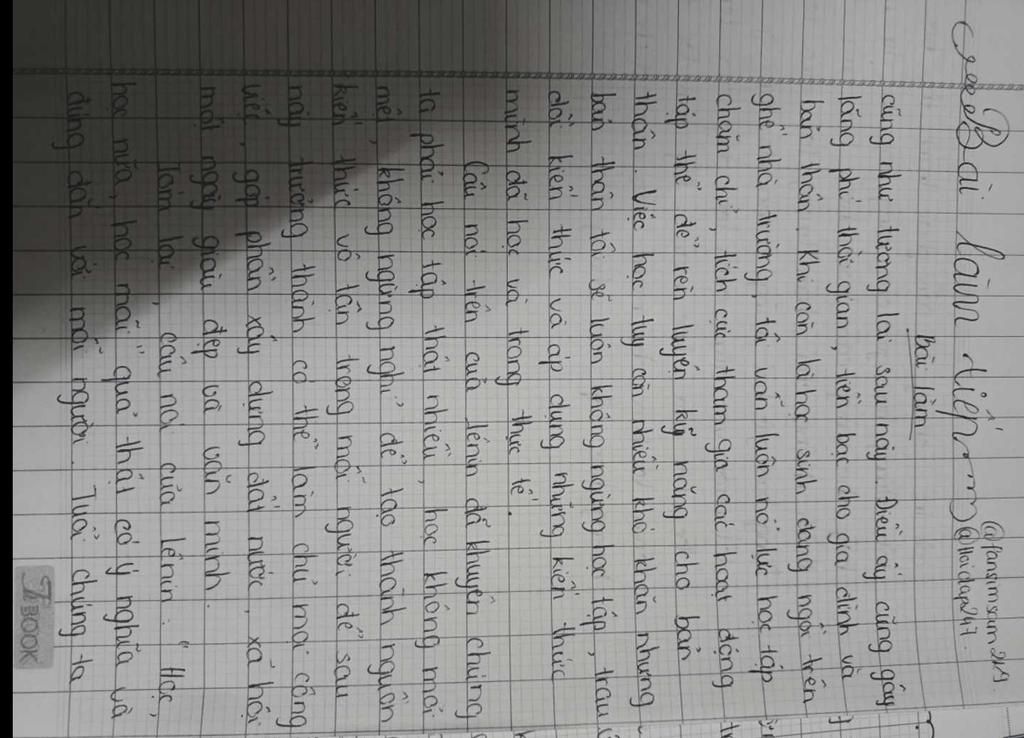 @tansimsam2k9.
@Hoidap247.
Bài làm tiếp
Bài làm
cũng như tương lai sau này. Điều ấy cũng gây
lãng phí thời gian, tiền bạc cho gia đình và
bản thân. Khi còn là học sinh đang ngồi trên
ghế nhà trường, tôi vẫn luôn nỗ lực học tập
chăm chỉ, tích cực tham gia các hoạt động
tập thể để rèn luyện kỹ năng cho bản
thân. Việc học tuy còn nhiều khó khăn nhưng
bản thân tôi sẽ luôn không ngừng học tập, trau
dồi kiến thức và áp dụng những kiến thức
mình đã học và trong thực tế.
Câu nói trên của Lênin đã khuyên chúng
ta phải học tập thật nhiều, học không mỏi
mệt, không ngừng nghỉ để tạo thành nguồn
kiến thức vô tận trong mỗi người để sau
này trưởng thành có thể làm chủ mọi công
việc, góp phần xây dựng đất nước, xã hội
một ngày giàu đẹp và văn minh.
Tóm lại, câu nói của Lênin: "Học,
học nữa, học mãi" quả thật có ý nghĩa và
đúng đắn với mỗi người. Tuổi chúng ta
BOOK